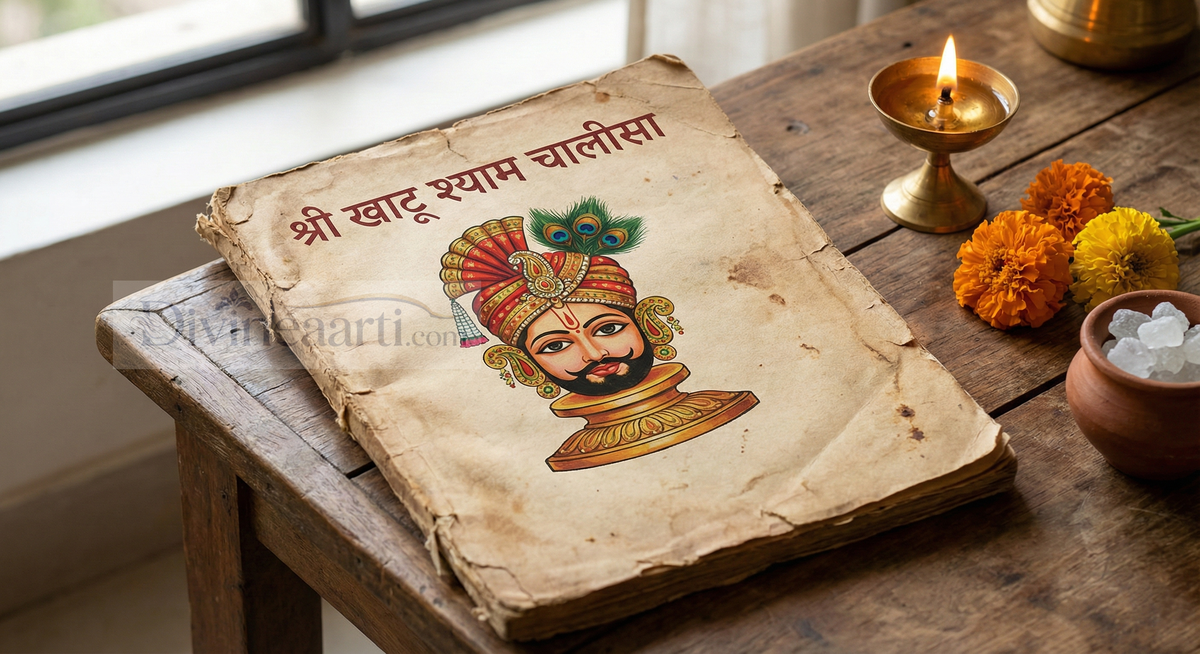 श्री खाटू श्याम चालीसा
Divineaarti.com